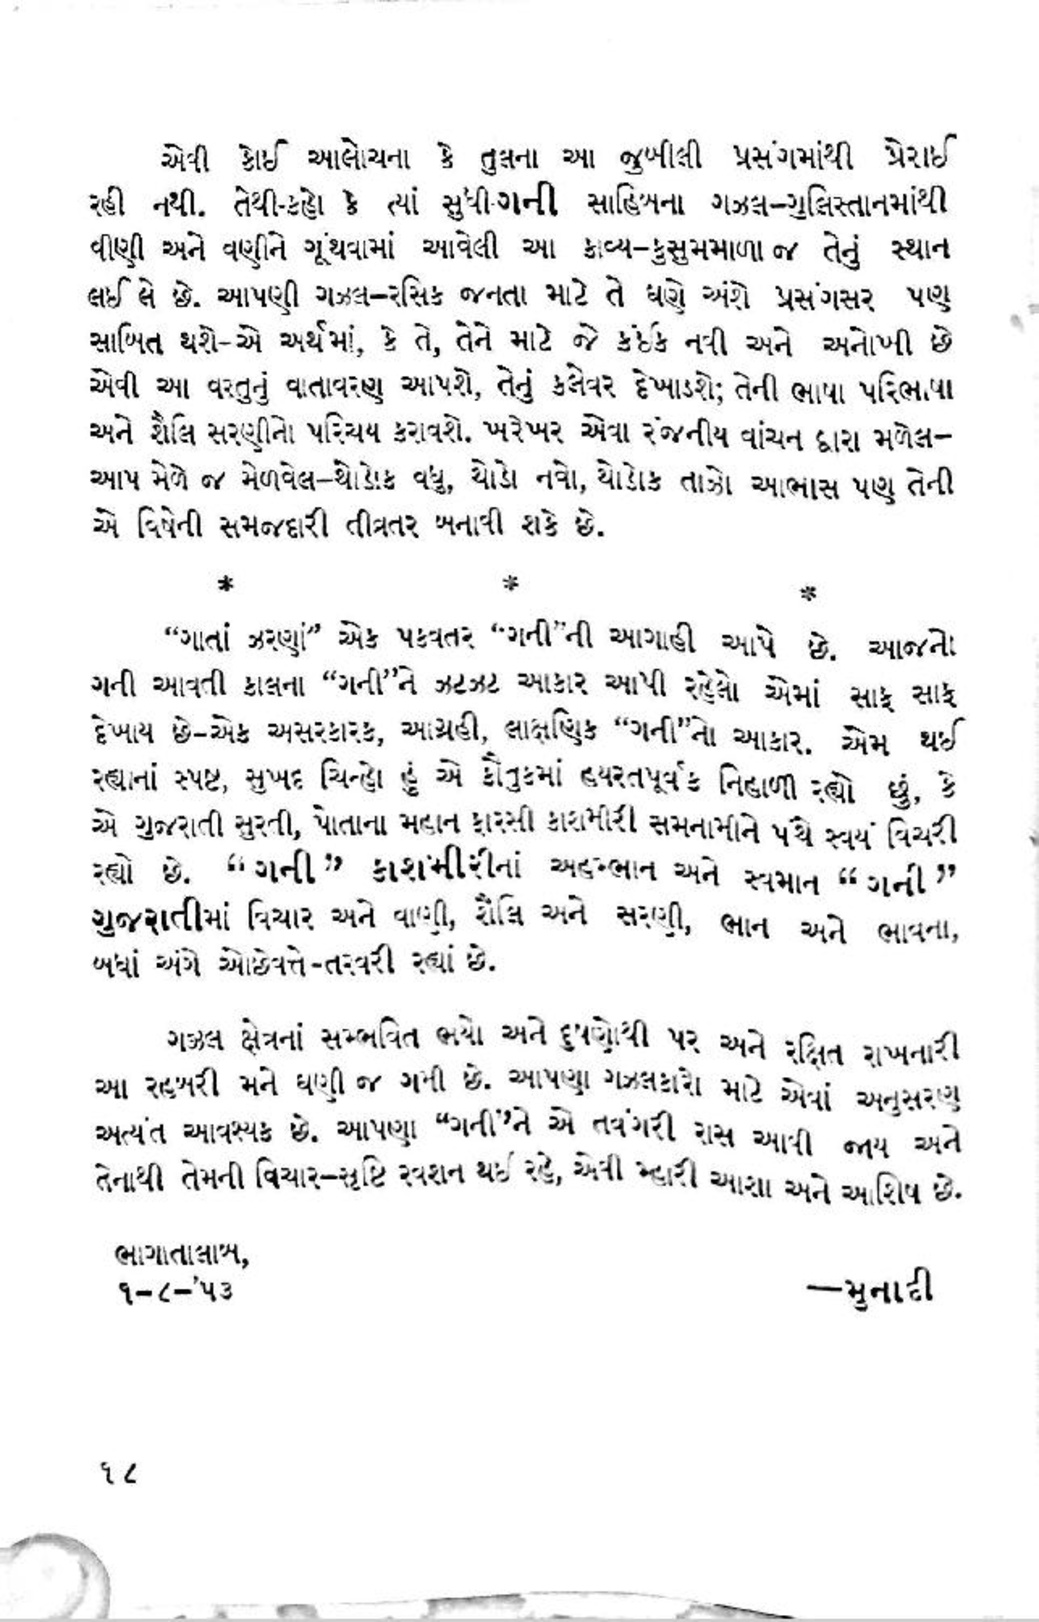 એવી કોઈ આલોચના કે તુલના આ જુબીલી પ્રસંગમાંથી પ્રેરાઈ
રહી નથી. તેથી-કહો કે ત્યાં સુધી-ગની સાહિત્યના ગઝલ–ગુલિસ્તાનમાંથી
વીણી અને વણીને ગૂંથવામાં આવેલી આ કાવ્ય–કુસુમમાળા જ તેનું સ્થાન
લઈ લે છે. આપણી ગઝલ–રસિક જનતા માટે તે ઘણે અંશે પ્રસંગસર પણ
સાબિત થશે–એ અર્થમાં, કે તે, તેને માટે જે કંઈક નવી અને અનોખી છે
એવી આ વસ્તુનું વાતાવરણ આપશે, તેનું કલેવર દેખાડશે; તેની ભાષા પરિભાષા
અને શૈલિ સરણીનો પરિચય કરાવશે. ખરેખર એવા રંજનીય વાંચન દ્વારા મળેલ–
આપ મેળે જ મેળવેલ–થોડોક વધુ, થોડો નવો, થોડોક તાઝો આભાસ પણ તેની
એ વિષેની સમજદારી તીવ્રતર બનાવી શકે છે.
* * *
“ગાતાં ઝરણાં” એક પકવતર “ગની”ની આગાહી આપે છે. આજનો
ગની આવતી કાલના “ગની”ને ઝટઝટ આકાર આપી રહેલો એમાં સાફ સાફ
દેખાય છે–એક અસરકારક, આગ્રહી, લાક્ષણિક “ગની”નો આકાર. એમ થઈ
રહ્યાનાં સ્પષ્ટ, સુખદ ચિન્હો હું એ કૌતુકમાં હયરતપૂર્વક નિહાળી રહ્યો છું, કે
એ ગુજરાતી સુરતી, પોતાના મહાન ફારસી કાશમીરી સમનામીને પંથે સ્વયં વિચરી
રહ્યો છે. “ગની” કાશમીરીનાં અહમ્ભાન અને સ્વમાન “ગની”
ગુજરાતીમાં વિચાર અને વાણી, શૈલિ અને સરણી, ભાન અને ભાવના,
બધાં અંગે ઓછેવત્તે–તરવરી રહ્યાં છે.
ગઝલ ક્ષેત્રનાં સમ્ભવિત ભયો અને દુષણોથી પર અને રક્ષિત રાખનારી
આ રહબરી મને ઘણી જ ગમી છે. આપણા ગઝલકારો માટે એવાં અનુસરણ
અત્યંત આવશ્યક છે. આપણા “ગની”ને એ તવંગરી રાસ આવી જાય અને
તેનાથી તેમની વિચાર–સૃષ્ટિ રવશન થઈ રહે, એવી મ્હારી આશા અને આશિષ છે.
ભાગાતાલાબ,
૧–૮–'૫૩
—મુનાદી
૧૮